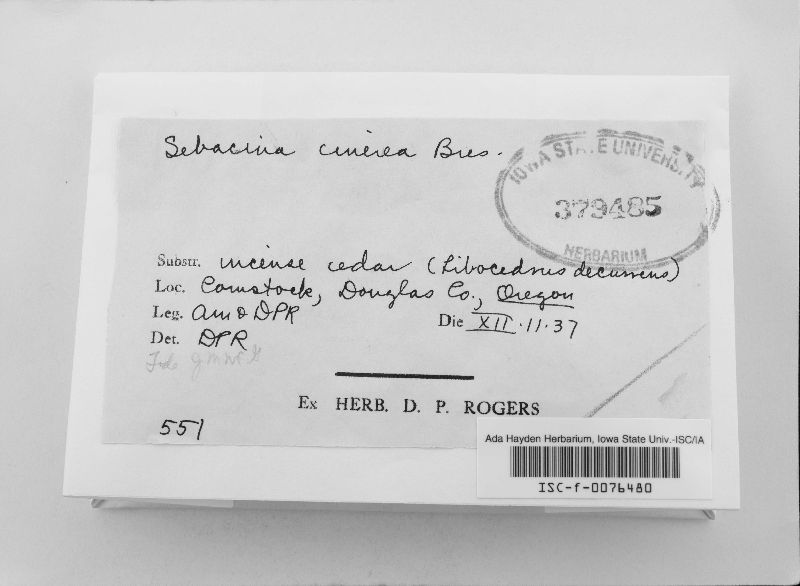 Sebacina cinerea Bres.
IOWA STATE UNIVERSITY
379485
HERBARIUM
Substr. incense cedar (Libocedrus decurrens)
Loc. Comstock, Douglas Co., Oregon
Leg. AM & DPR
Die XII.11.37
Det. DPR
Ex HERB. D. P. ROGERS
551
Ada Hayden Herbarium, Iowa State Univ.-ISC/IA
ISC-f-0076480